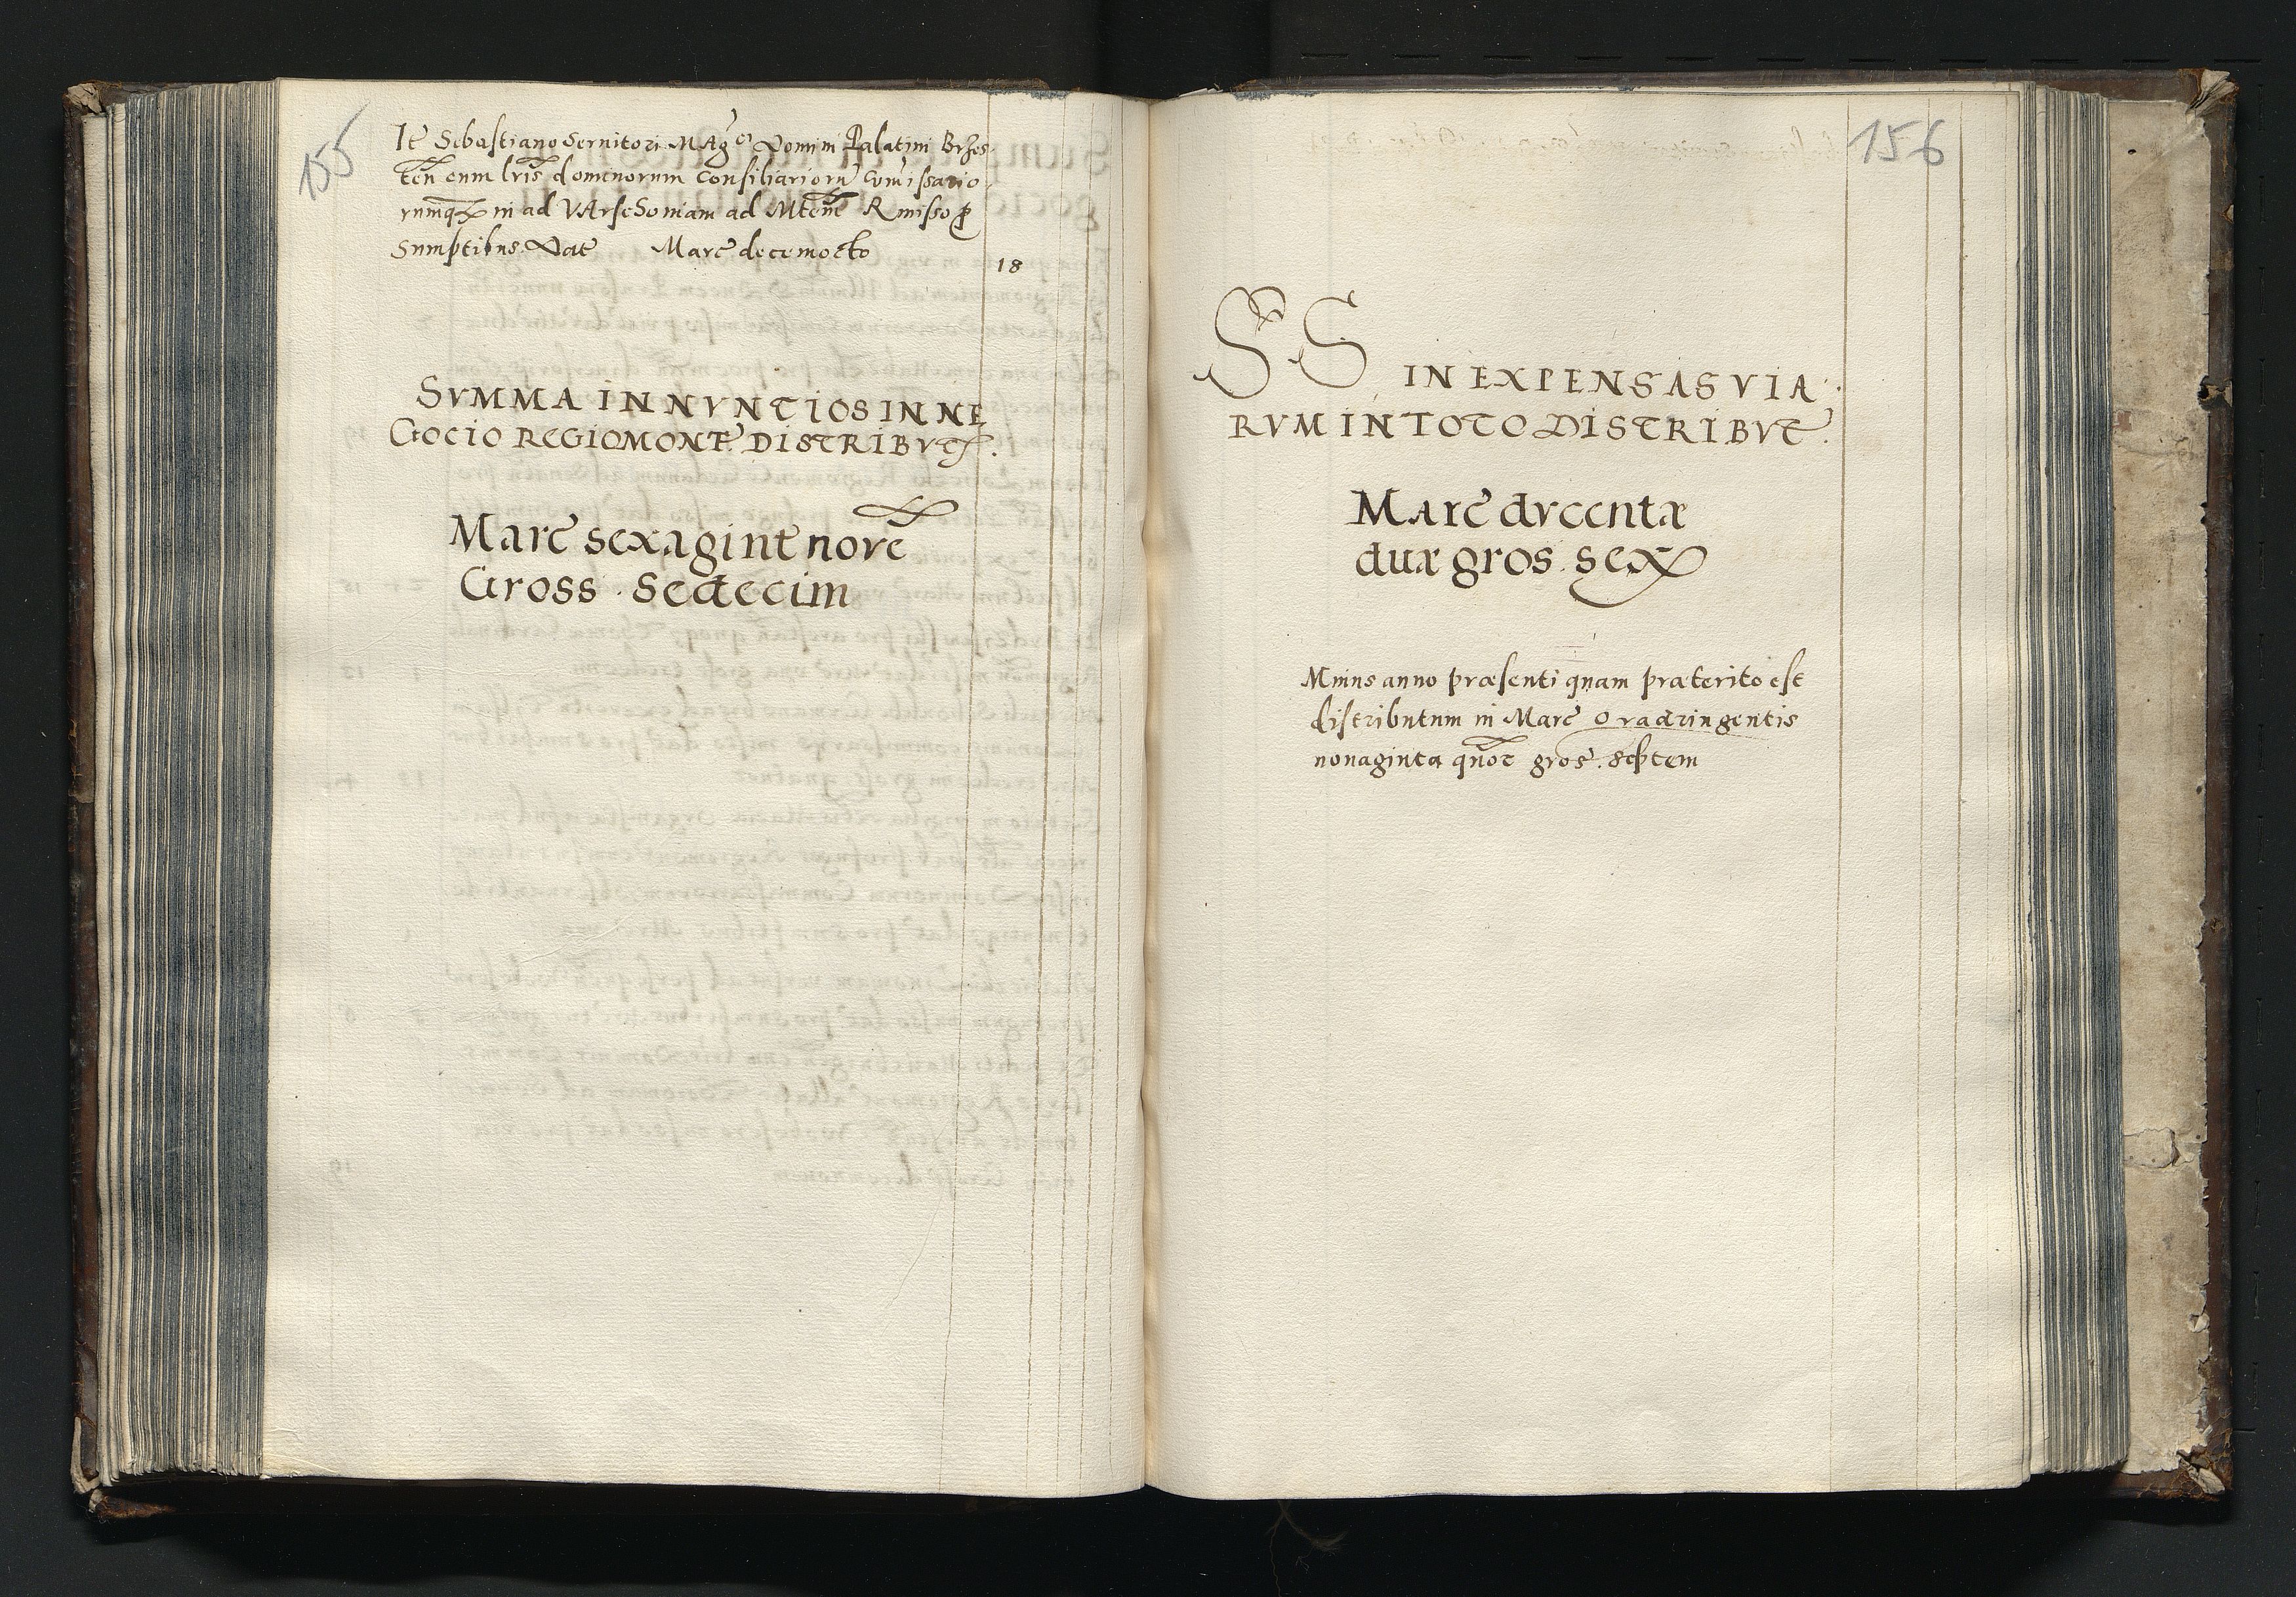 155
Ite Sebastiano Servitori Mag^co Domini Palatini Brzes
ten cum lris dominorum consiliarioru comissario
rumq in ad VArseSoviam ad Mtem R misso p
sumptibus Dat Marc decemocto
18
SVMMA IN NVNCIOS IN NE
GOCIO REGIOMONT DISTRIBVT.
Marc sexagint nove
Gross. Sedecim
156
SS IN EXPENSAS VIA
RVM IN TOTO DISTRIBVT.
Marc dvcentæ
duæ gros. sex
Minus anno præsenti quam præterito est
distributum in Marc Qvadringentis
nonaginta gros. septem